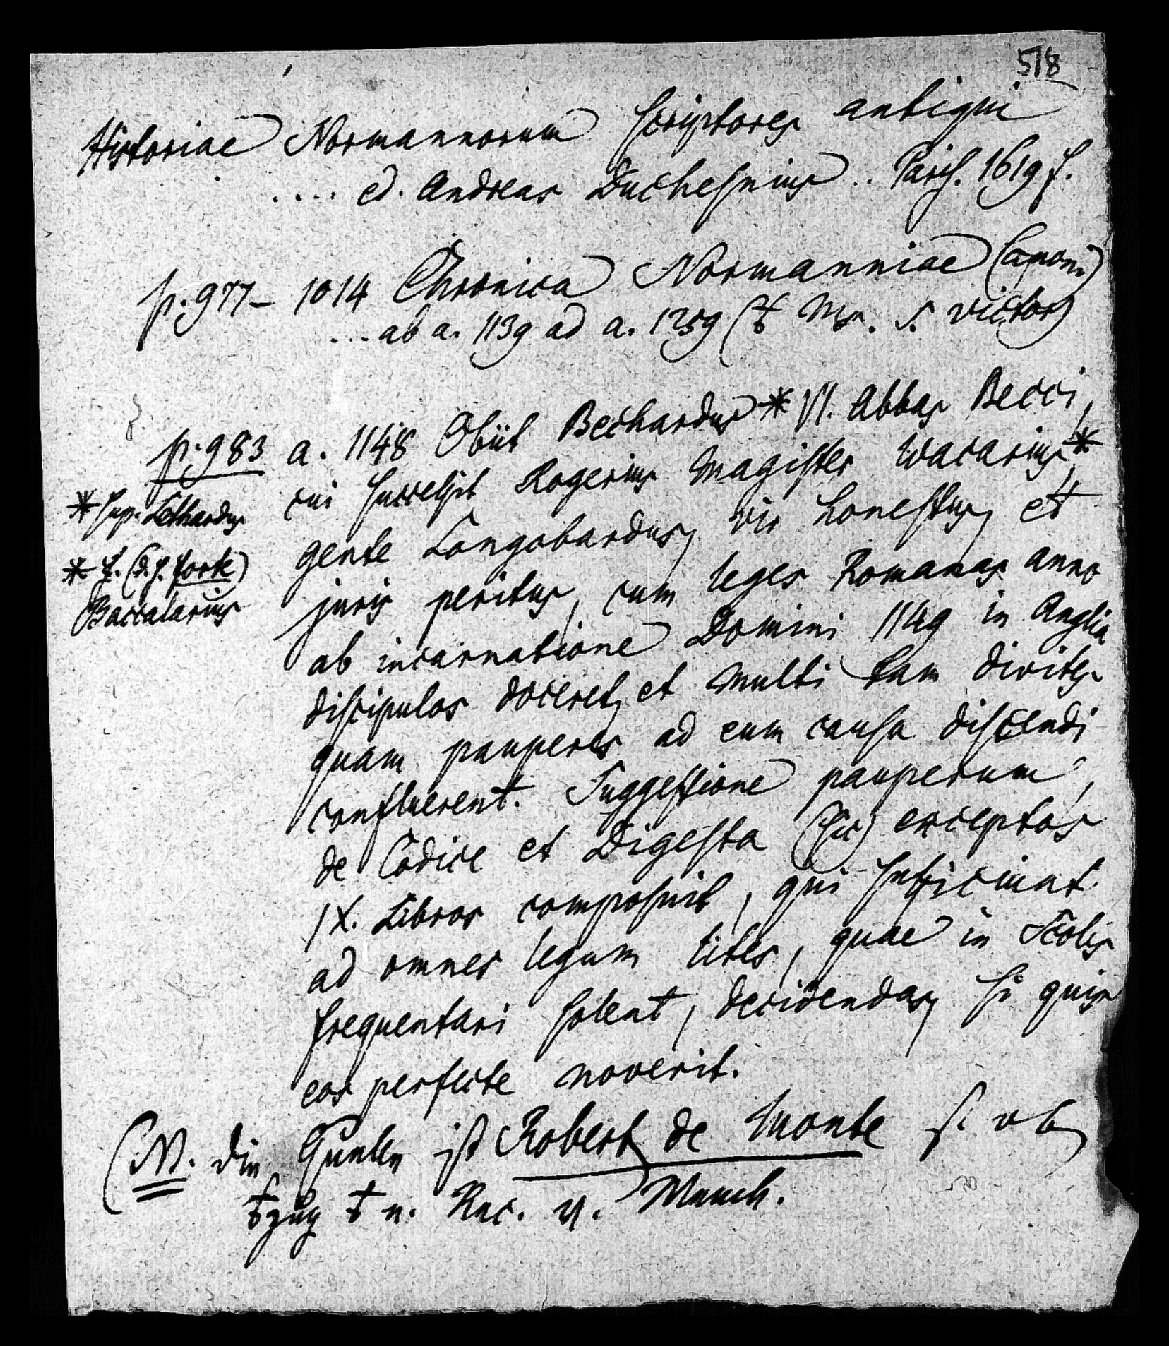 518
Historiae Normannorum Scriptores antiqui
.... ed. Andreas Duchesnius .. Paris. 1619 f.
p. 977 – 1014 Chronica Normanniae
... ab a. 1139 ad a. 1259 Ms. S. Victor)
p. 983 a. 1148 Obiit Bechardus * VI. Abbas Becci,
cui successit Rogerius Magister Wacarius *
* sup. Lethardus
gente Longobardus, vir honestus, et
* (d. h. forte)
juris peritus, cum leges Romanas anno
Baccalarius
ab incarnatione Domini 1149 in Anglia
discipulos doceret, et multi tam divites
quam pauperes ad eum causa discendi
confluerent. Suggestione pauperum,
de Codice et Digesta (sic) exceptos
IX. Libros composuit, qui sufficiunt
ad omnes legum lites, quae in Scolis
frequentari solent, decidendas, si quis
eos perfecte noverit.
(NB. die Quelle ist Robert de Monte s. ob
u.